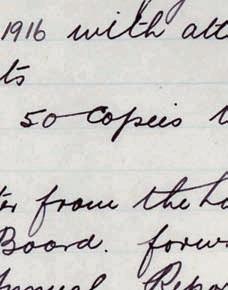 1916 with att
ts
50 Copies t
ter from the Lo
Board. forw
Annual Repor